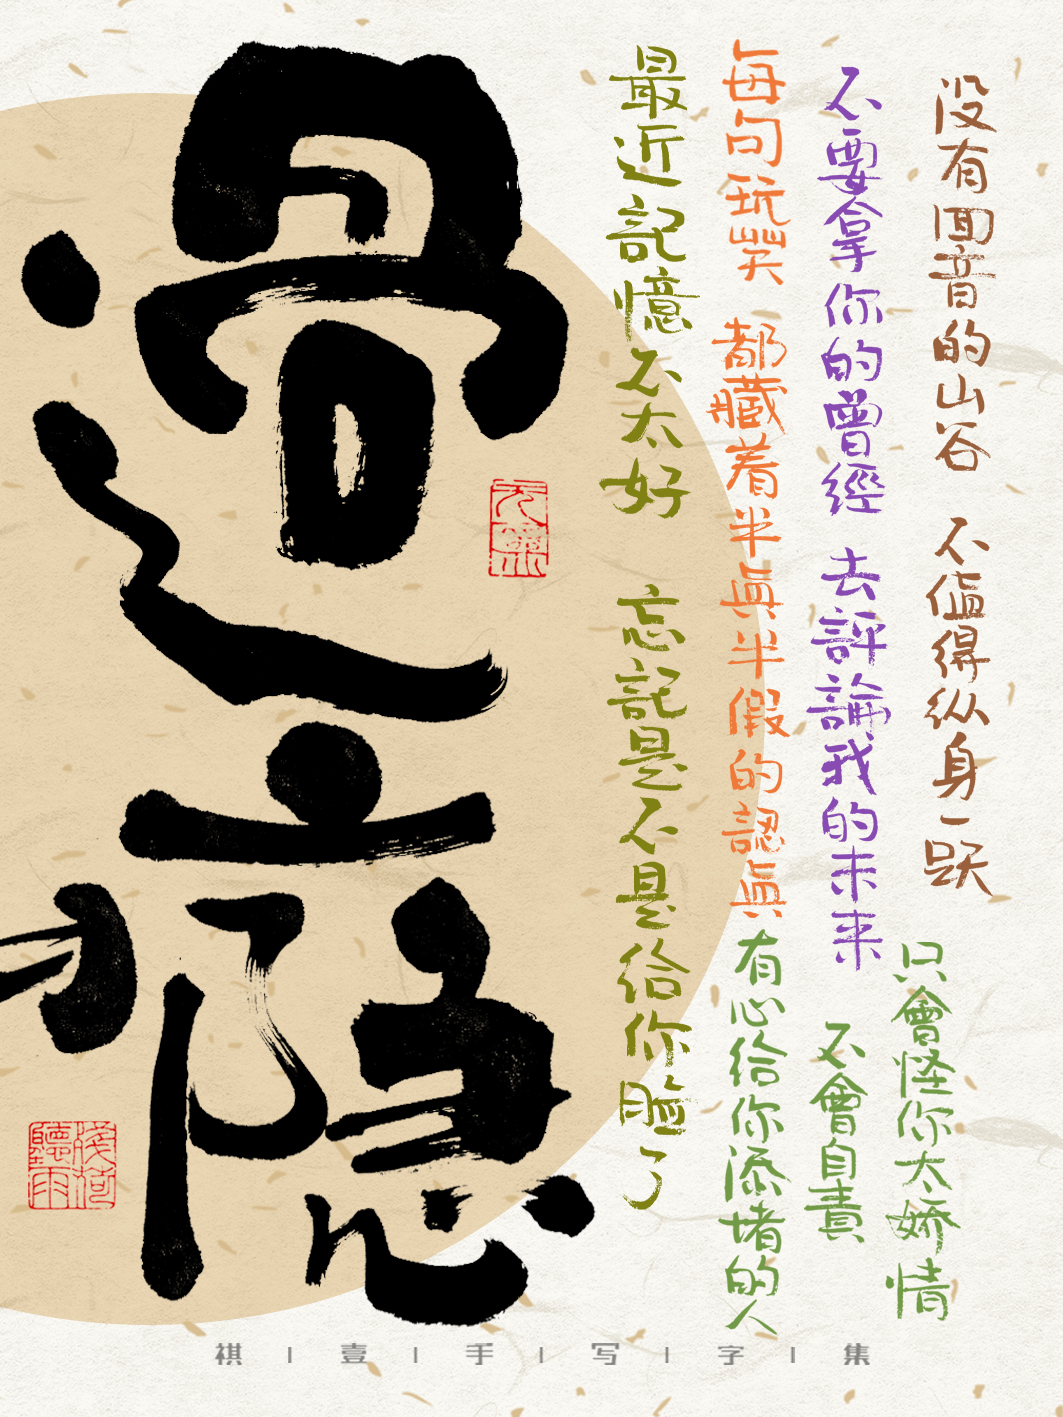 過癮
没有回音的山谷 不值得纵身一跃
不要拿你的曾經 去評論我的未来
每句玩笑 都藏着半真半假的認真
最近記憶不太好 忘記是不是給你脸了
只會怪你太娇情
不會自責
有心給你添堵的人
淺荷聽雨
祺|壹|手|写|字|集